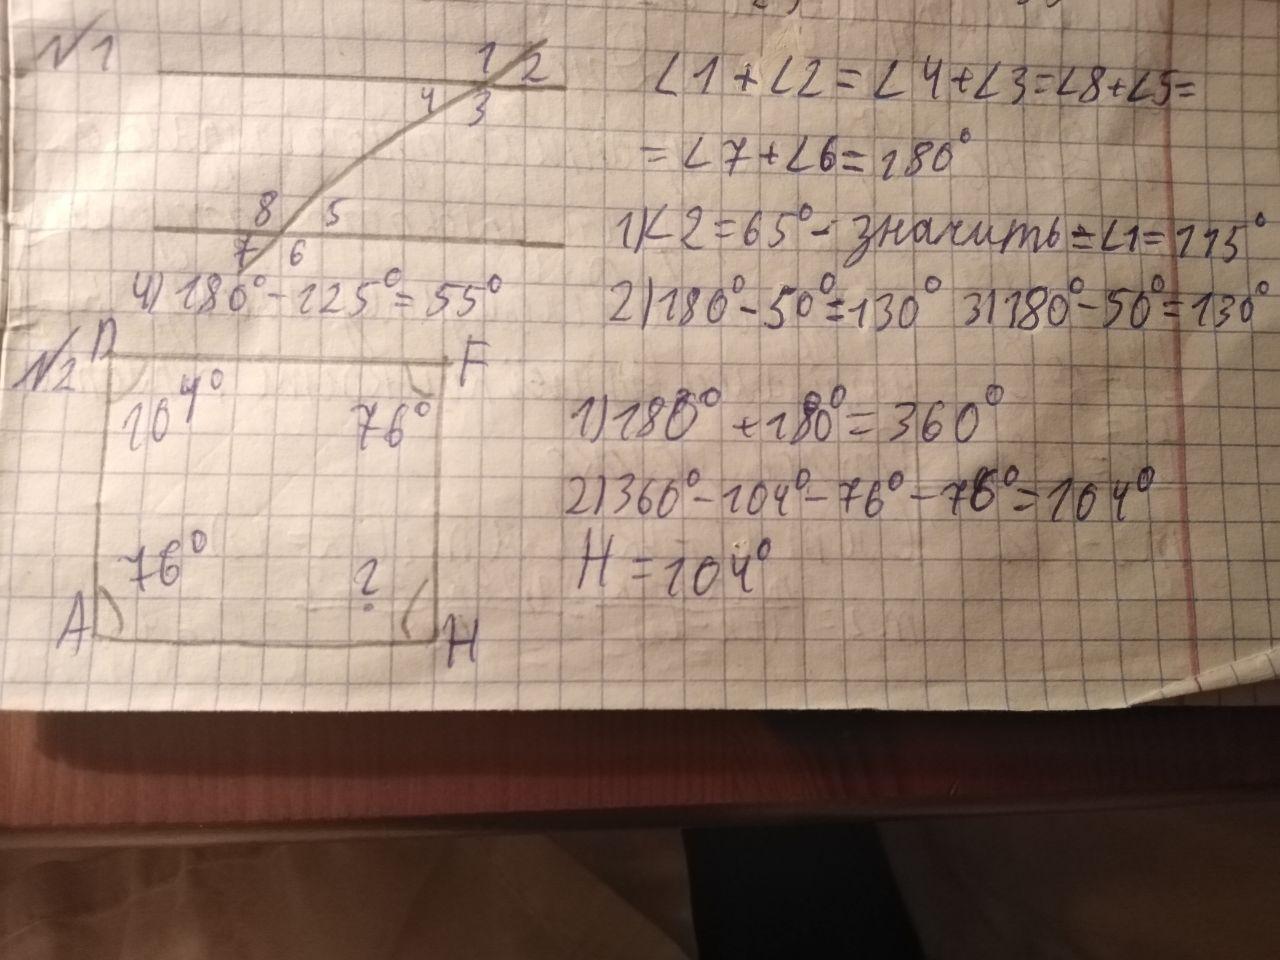 №1
1 2
4 3
8 5
7 6
∠1+∠2=∠4+∠3=∠8+∠5=
=∠7+∠6=180°
1)∠2=65°- значить ∠1=115°
2)180°-50°=130° 3)180°-50°=130°
4)180°-125°=55°
№2
D F
104° 76°
76° ?
A H
1)180°+180°=360°
2)360°-104°-76°-76°=104°
H=104°